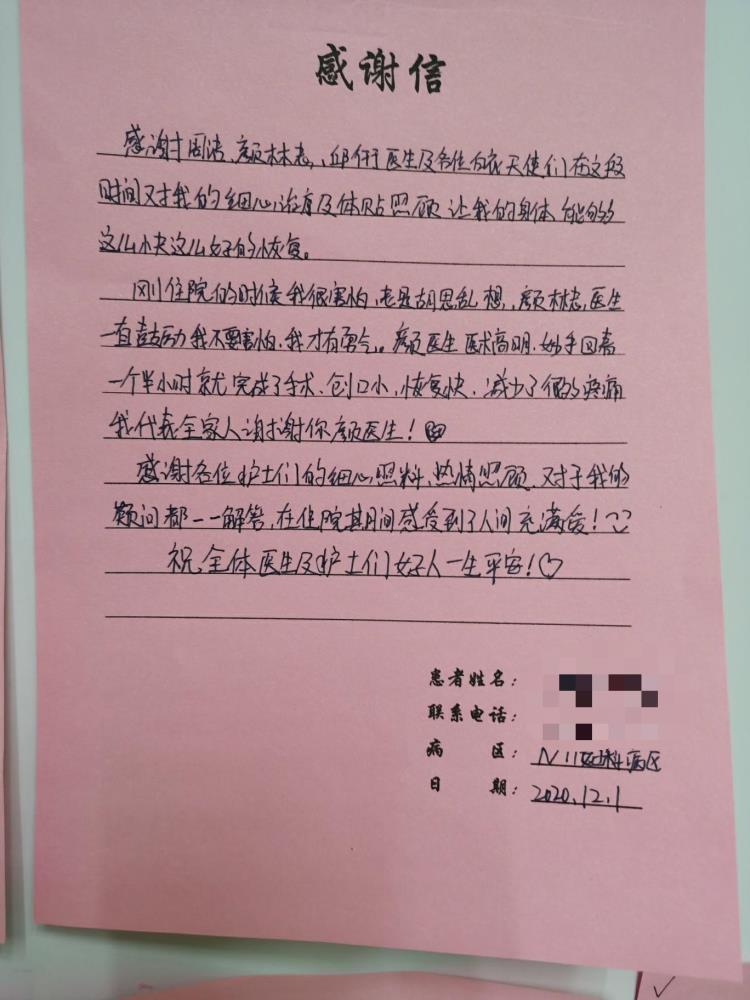 感谢信
感谢周涛、颜林志、邱仟医生及各位白衣天使们在这段
时间对我的细心治疗及体贴照顾 让我的身体能够
这么快这么好的恢复。
刚住院的时候我很害怕,老是胡思乱想,颜林志医生
一直鼓励我不要害怕,我才有勇气。颜医生医术高明,妙手回春
一个半小时就完成了手术、创口小,恢复快,减少了很多疼痛
我代表全家人谢谢你颜医生!
感谢各位护士们的细心照料,热情照顾,对于我的
疑问都一一解答,在住院其间感受到了人间充满爱!
祝全体医生及护士们好人一生平安!♡
患者姓名:
联系电话:
病 区:N11妇科病区
日 期:2020.12.1